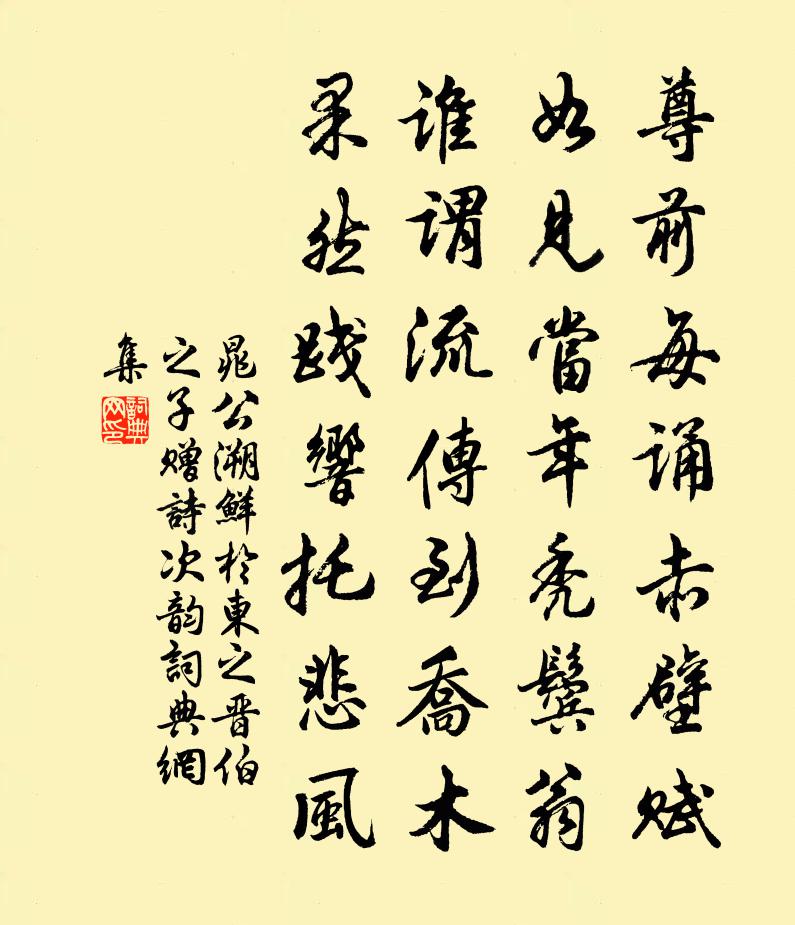 尊前每誦赤壁賦
如見當年禿鬢翁
誰謂流傳到喬木
果然踐響托悲風
晁公溯鮮於東之晋伯
之子贈詩次韵詞典網
集
詞典网印